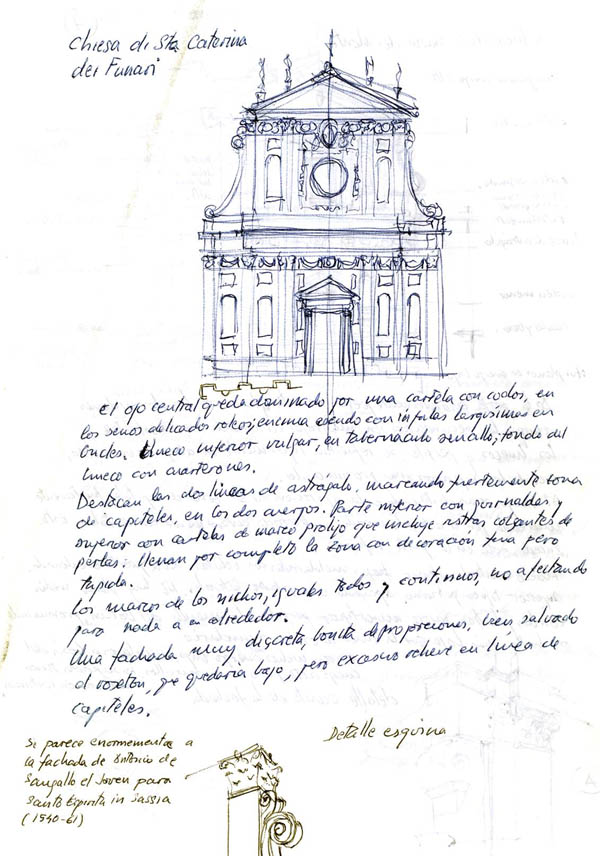 Chiesa di Sta Caterina
dei Funari
El ojo central queda dominado por una cartela con codos, en
los senos delicados roleos; encima escudo con ínfulas larguísimas en
bucles. Hueco inferior vulgar, en tabernáculo sencillo; fondo del
hueco con cuarterones.
Destacan las dos líneas de astrágalo, marcando fuertemente zona
de capiteles, en los dos cuerpos. Parte inferior con guirnaldas y
superior con cartelas de marco prolijo que incluye ristras colgantes de
perlas: llenan por completo la zona con decoración fina pero
tupida.
Los marcos de los nichos, iguales todos y continuos, no afectando
para nada a su alrededor.
Una fachada muy discreta, bonita de proporciones, bien salvado
el rosetón, que quedaría bajo, pero excesivo relieve en línea de
capiteles.
Se parece enormemente a
la fachada de Antonio de
Sangallo el Joven para
Santo Espirito in Sassia
(1540-61)
Detalle esquina